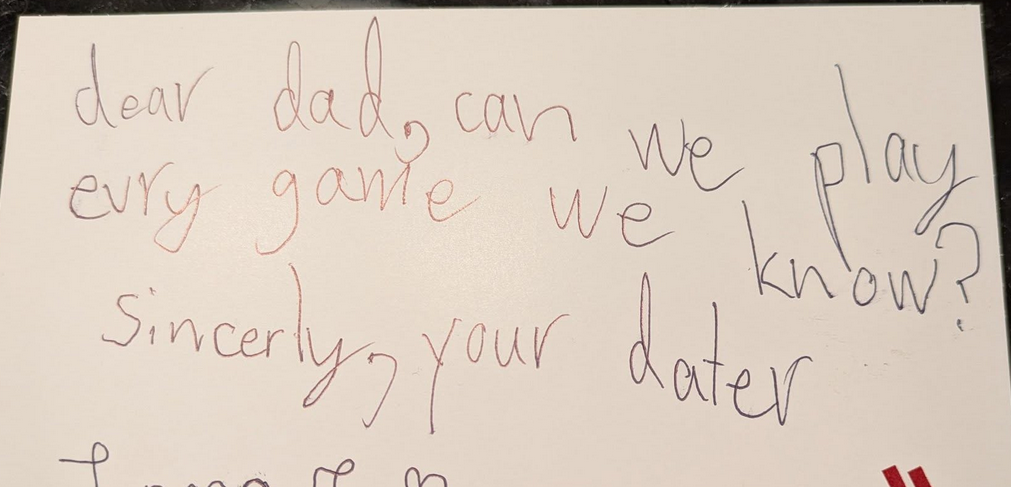 dear dad, can we play
evry game we know?
sincerly, your dater